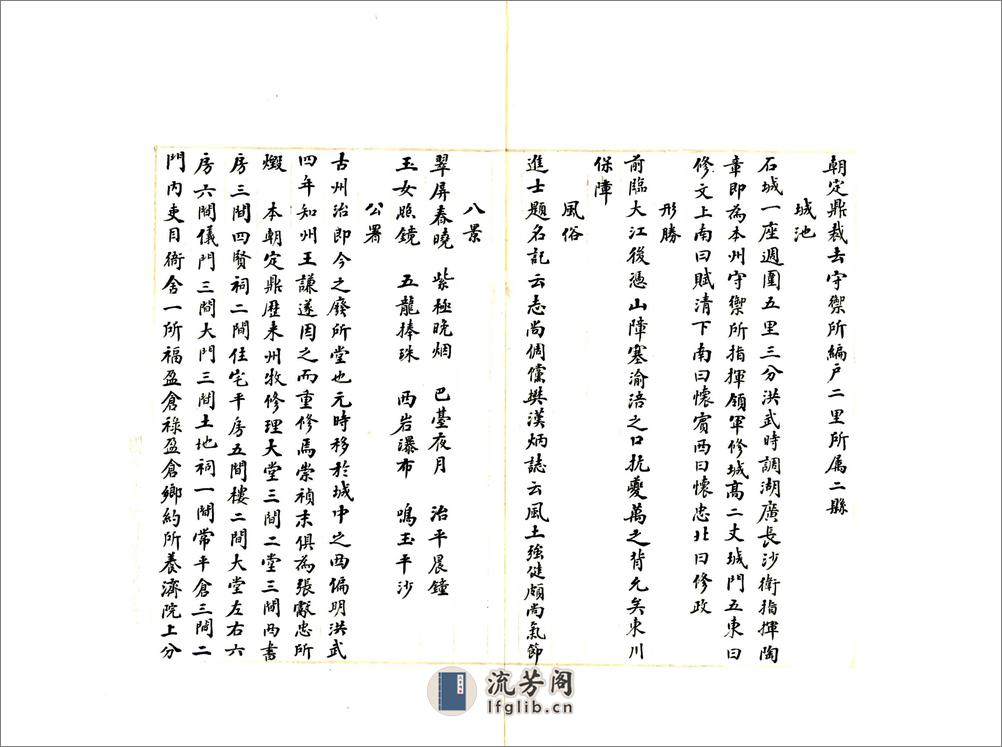 朝定鼎裁去守禦所編戶二里所属二縣
城池
石城一座週圍五里三分洪武時調湖廣長沙衛指揮陶
章即為本州守禦所指揮領軍修城高二丈城門五東曰
修文上南曰賦清下南曰懷賓西曰懷忠北曰修政
形勝
前臨大江後憑山障塞渝涪之口扼夔萬之背允矣東川
保障
風俗
進士題名記云志尚倜儻樊漢炳誌云風土強健頗尚氣節
八景
翠屏春曉 紫極晚烟 巴臺夜月 治平晨鐘
玉女照鏡 五龍捧珠 西岩瀑布 鳴玉平沙
公署
古州治即今之廢所堂也元時移於城中之西偏明洪武
四年知州王謙遂因之而重修焉崇禎末俱為張獻忠所
燬 本朝定鼎歷来州牧修理大堂三間二堂三間两書
房三間四賢祠二間住宅平房五間樓二間大堂左右六
房六間儀門三間大門三間土地祠一間常平倉三間二
門內吏目衙舍一所福盈倉祿盈倉鄉約所養濟院上分
流芳阁
lfglib.cn